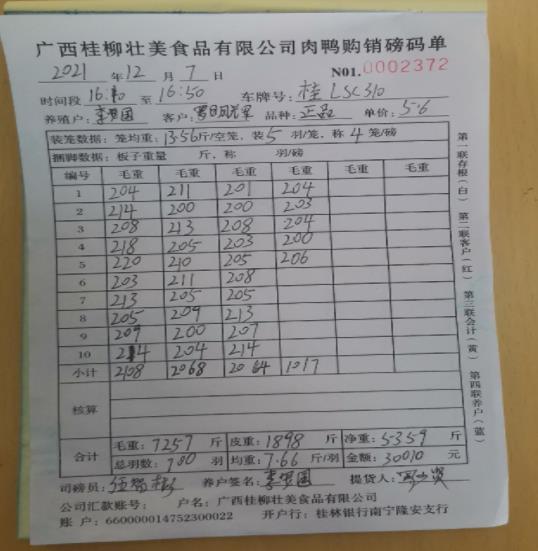 广西桂柳壮美食品有限公司肉鸭购销磅码单
2021 年 12 月 7 日 N01.0002372
时间段 16:10 至 16:50 车牌号: 桂LSC310
养殖户: 李 国 客户: 品种: 正品 单价: 5.6
装笼数据: 笼均重: 13.56 斤/空笼, 装 5 羽/笼, 称 4 笼/磅
捆脚数据: 板子重量 斤, 称 羽/磅
编号 毛重 毛重 毛重 毛重 毛重 毛重
1 204 211 201 204
2 214 200 200 203
3 208 213 208 204
4 218 205 203 200
5 220 210 205 206
6 203 211 208
7 213 205 205
8 205 209 213
9 209 200 207
10 214 204 214
小计 2108 2068 2064 1017
核算
合计 毛重: 7257 斤 皮重: 1898 斤 净重: 5359 斤
总羽数: 700 羽 均重: 7.66 斤/羽 金额: 30010 元
司磅员: 养户签名: 李 国 提货人:
公司汇款账号: 户名: 广西桂柳壮美食品有限公司
账 户: 660000014752300022 开户行: 桂林银行南宁隆安支行
第一联存根(白) 第二联客户(红) 第三联会计(黄) 第四联养户(蓝)